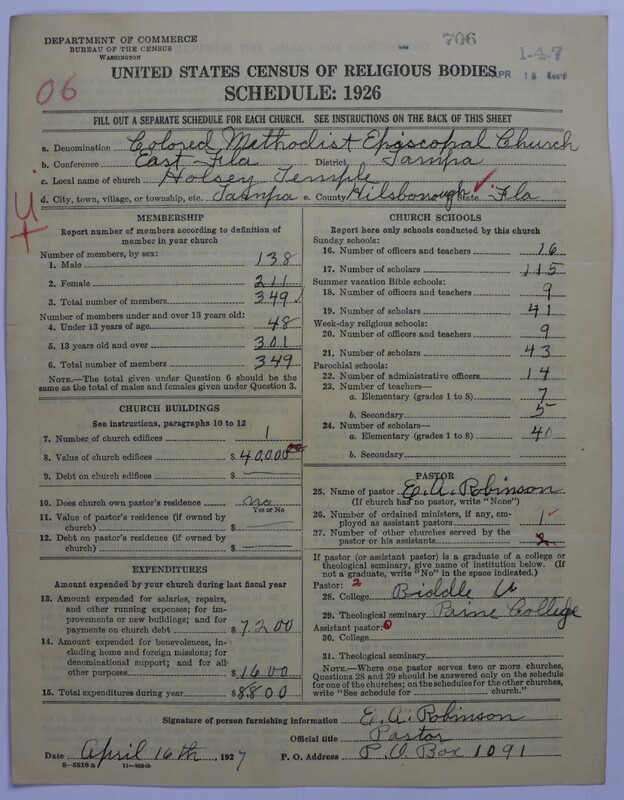 DEPARTMENT OF COMMERCE
BUREAU OF THE CENSUS
WASHINGTON
706
1-47
APR 18 Rec'd
06
UNITED STATES CENSUS OF RELIGIOUS BODIES
SCHEDULE: 1926
FILL OUT A SEPARATE SCHEDULE FOR EACH CHURCH. SEE INSTRUCTIONS ON THE BACK OF THIS SHEET
a. Denomination Colored Methodist Episcopal Church
b. Conference East Fla District Tampa
c. Local name of church Holsey Temple
d. City, town, village, or township, etc. Tampa e. County Hilsborough State Fla
MEMBERSHIP
Report number of members according to definition of
member in your church
Number of members, by sex:
1. Male 138
2. Female 211
3. Total number of members 349
Number of members under and over 13 years old:
4. Under 13 years of age 48
5. 13 years old and over 301
6. Total number of members 349
NOTE.—The total given under Question 6 should be the
same as the total of males and females given under Question 3.
CHURCH BUILDINGS
See instructions, paragraphs 10 to 12
7. Number of church edifices 1
8. Value of church edifices $40,000
9. Debt on church edifices $
10. Does church own pastor's residence No
Yes or No
11. Value of pastor's residence (if owned by
church) $
12. Debt on pastor's residence (if owned by
church) $
EXPENDITURES
Amount expended by your church during last fiscal year
13. Amount expended for salaries, repairs,
and other running expenses; for im-
provements or new buildings; and for
payments on church debt $7200
14. Amount expended for benevolences, in-
cluding home and foreign missions; for
denominational support; and for all
other purposes $1600
15. Total expenditures during year $8800
CHURCH SCHOOLS
Report here only schools conducted by this church
Sunday schools:
16. Number of officers and teachers 16
17. Number of scholars 115
Summer vacation Bible schools:
18. Number of officers and teachers 9
19. Number of scholars 41
Week-day religious schools:
20. Number of officers and teachers 9
21. Number of scholars 43
Parochial schools:
22. Number of administrative officers 14
23. Number of teachers—
a. Elementary (grades 1 to 8) 7
b. Secondary 5
24. Number of scholars—
a. Elementary (grades 1 to 8) 40
b. Secondary
PASTOR
25. Name of pastor E. A. Robinson
(If church had no pastor, write "None")
26. Number of ordained ministers, if any, em-
ployed as assistant pastors 1
27. Number of other churches served by the
pastor or his assistants
If pastor (or assistant pastor) is a graduate of a college or
theological seminary, give name of institution below. (If
not a graduate, write "No" in the space indicated.)
Pastor: 2
28. College Biddle U
29. Theological seminary Paine College
Assistant pastor: 0
30. College
31. Theological seminary
NOTE.—Where one pastor serves two or more churches,
Questions 28 and 29 should be answered only on the schedule
for one of the churches; on the schedules for the other churches,
write "See schedule for church."
Signature of person furnishing information E. A. Robinson
Official title Pastor
Date April 16th, 1927 P. O. Address P.O Box 1091